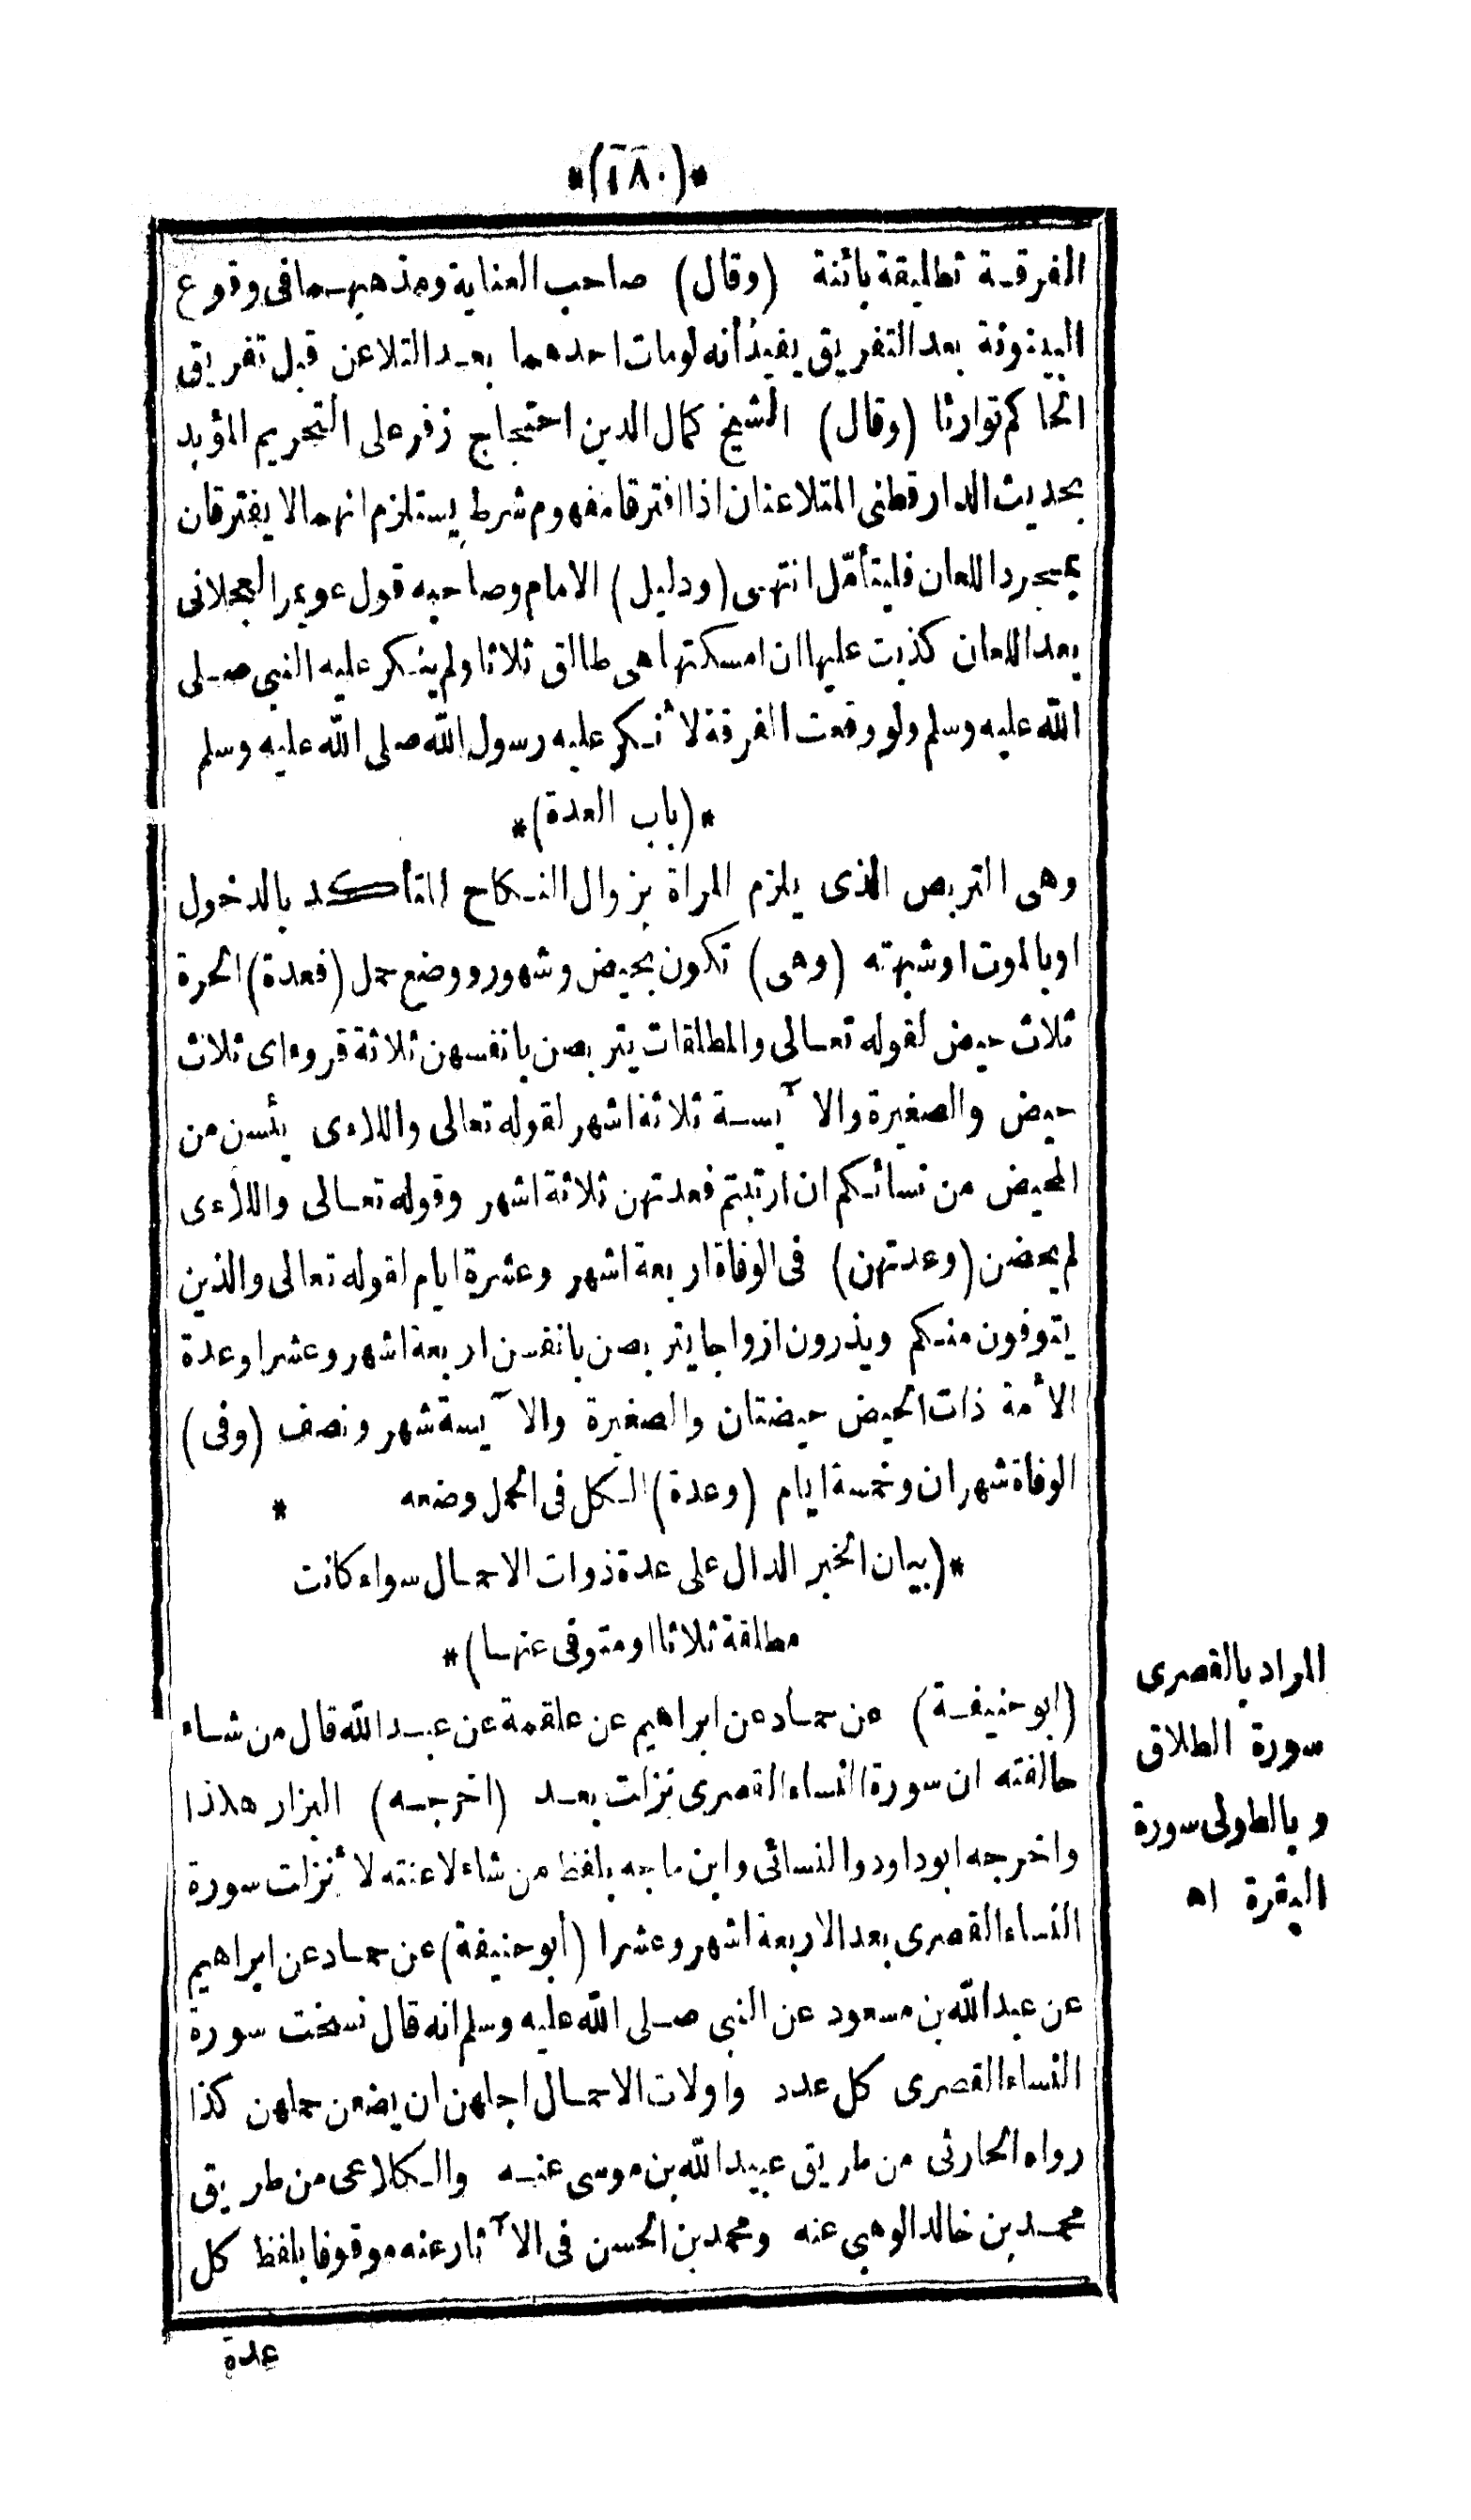 *(١٨٠)*
الفرقة تطليقة بائنة (وقال) صاحب العناية ومذهبهما فى وقوع
البينونة بعد التفريق يفيد أنه لومات احدهما بعد التلاعن قبل تفريق
الحاكم توارثا (وقال) الشيخ كمال الدين احتجاج زفر على التحريم المؤبد
بحديث الدارقطنى المتلاعنان اذا افترقا مفهوم شرط يستلزم انهما لا يفترقان
بمجرد اللعان فليتأمّل انتهى (ودليل) الامام وصاحبه قول عويمر العجلانى
بعد اللعان كذبت عليها ان امسكتها هى طالق ثلاثا ولم ينكر عليه النبى صلى
الله عليه وسلم ولو وقعت الفرقة لأنكر عليه رسول الله صلى الله عليه وسلم
*(باب العدة)*
وهى التربص الذى يلزم المراة بزوال النكاح المتأكد بالدخول
او بالموت او شبهته (وهى) تكون بحيض وشهور ووضع حمل (فعدة) الحرة
ثلاث حيض لقوله تعالى والمطلقات يتربصن بانفسهن ثلاثة قروء اى ثلاث
حيض والصغيرة والآيسة ثلاثة اشهر لقوله تعالى واللاءى يئسن من
المحيض من نسائكم ان ارتبتم فعدتهن ثلاثة اشهر وقوله تعالى واللاءى
لم يحضن (وعدتهن) فى الوفاة اربعة اشهر وعشرة ايام لقوله تعالى والذين
يتوفون منكم ويذرون ازواجا يتربصن بانفسهن اربعة اشهر وعشرا وعدة
الأمة ذات الحيض حيضتان والصغيرة والآيسة شهر ونصف (وفى)
الوفاة شهران وخمسة ايام (وعدة) الكل فى الحمل وضعه *
*(بيان الخبر الدال على عدة ذوات الاحمال سواء كانت
مطلقة ثلاثا او متوفى عنها)*
(ابو حنيفة) عن حماد عن ابراهيم عن علقمة عن عبد الله قال من شاء
حالفته ان سورة النساء القصرى نزلت بعد (اخرجه) البزار هكذا
واخرجه ابوداود والنسائى وابن ماجه بلفظ من شاء لاعنته لأنزلت سورة
النساء القصرى بعد الاربعة اشهر وعشرا (أبو حنيفة) عن حماد عن ابراهيم
عن عبد الله بن مسعود عن النبى صلى الله عليه وسلم انه قال نسخت سورة
النساء القصرى كل عدد واولات الاحمال اجلهن ان يضعن حملهن كذا
رواه الحارثى من طريق عبيد الله بن موسى عنه والكلاعى من طريق
محمد بن خالد الوهبى عنه ومحمد بن الحسن فى الآثار عنه موقوفا بلفظ كل
عدة
المراد بالقصرى
سورة الطلاق
وبالطولى سورة
البقرة اه